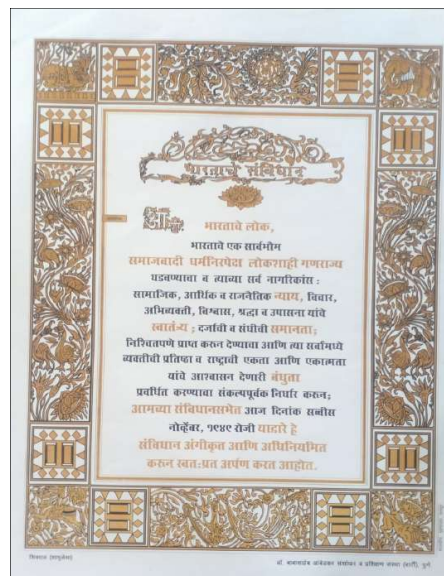 भारताचे संविधान
आम्ही
भारताचे लोक,
भारताचे एक सार्वभौम
समाजवादी धर्मनिरपेक्ष लोकशाही गणराज्य
घडवण्याचा व त्याच्या सर्व नागरिकांस :
सामाजिक, आर्थिक व राजनैतिक न्याय, विचार,
अभिव्यक्ती, विश्वास, श्रद्धा व उपासना यांचे
स्वातंत्र्य ; दर्जाची व संधीची समानता;
निश्चितपणे प्राप्त करुन देण्याचा आणि त्या सर्वांमध्ये
व्यक्तीची प्रतिष्ठा व राष्ट्राची एकता आणि एकात्मता
यांचे आश्वासन देणारी बंधुता
प्रवर्धित करण्याचा संकल्पपूर्वक निर्धार करुन;
आमच्या संविधानसभेत आज दिनांक सव्वीस
नोव्हेंबर, १९४९ रोजी याद्वारे हे
संविधान अंगीकृत आणि अधिनियमित
करुन स्वत:प्रत अर्पण करत आहोत.
डॉ. बाबासाहेब आंबेडकर संशोधन व प्रशिक्षण संस्था (बार्टी), पुणे.